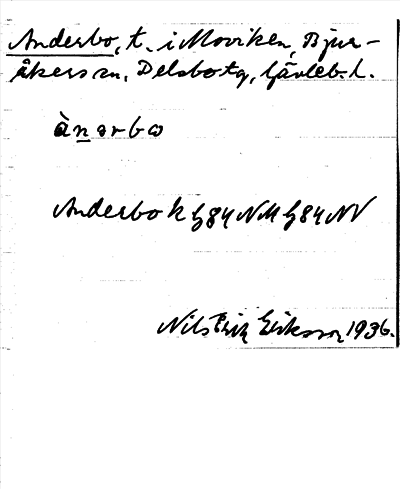 Anderbo, t. i Moviken, Bjur-
åkers sn, Delsbo tg, Gävleb. l.
ànərbω
Anderbo k G84NM G84NV
Nils Erik Eriksson 1936.